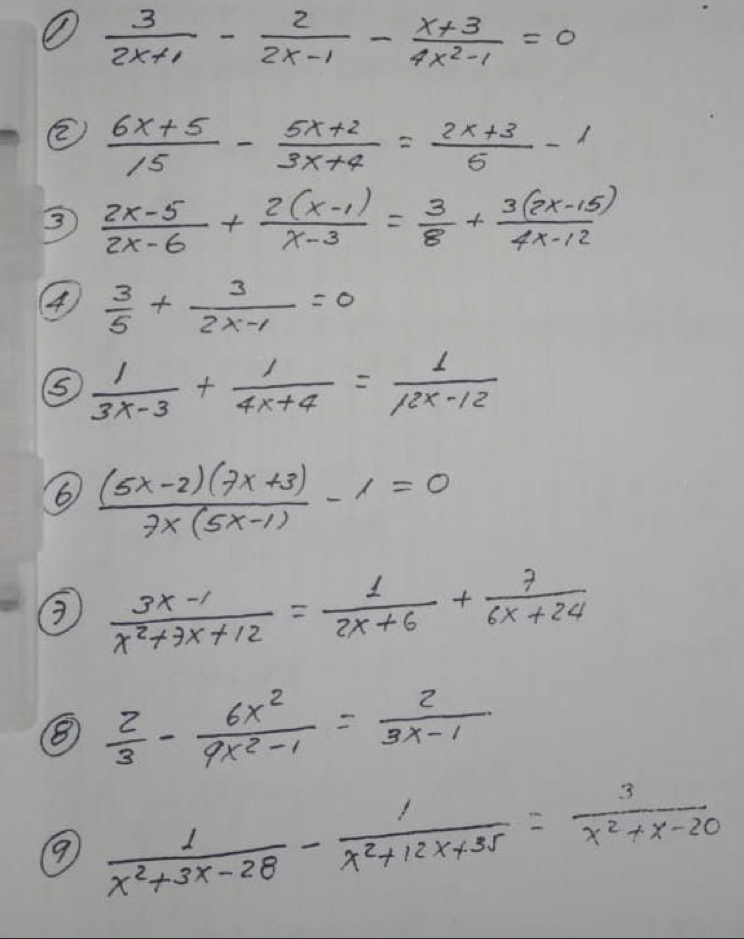 ① 3/(2x+1) - 2/(2x-1) - (x+3)/(4x²-1) = 0
② (6x+5)/15 - (5x+2)/(3x+4) = (2x+3)/5 - 1
③ (2x-5)/(2x-6) + 2(x-1)/(x-3) = 3/8 + 3(2x-15)/(4x-12)
④ 3/5 + 3/(2x-1) = 0
⑤ 1/(3x-3) + 1/(4x+4) = 1/(12x-12)
⑥ (5x-2)(7x+3)/(7x(5x-1)) - 1 = 0
⑦ (3x-1)/(x²+7x+12) = 1/(2x+6) + 7/(6x+24)
⑧ 2/3 - 6x²/(9x²-1) = 2/(3x-1)
⑨ 1/(x²+3x-28) - 1/(x²+12x+35) = 3/(x²+x-20)